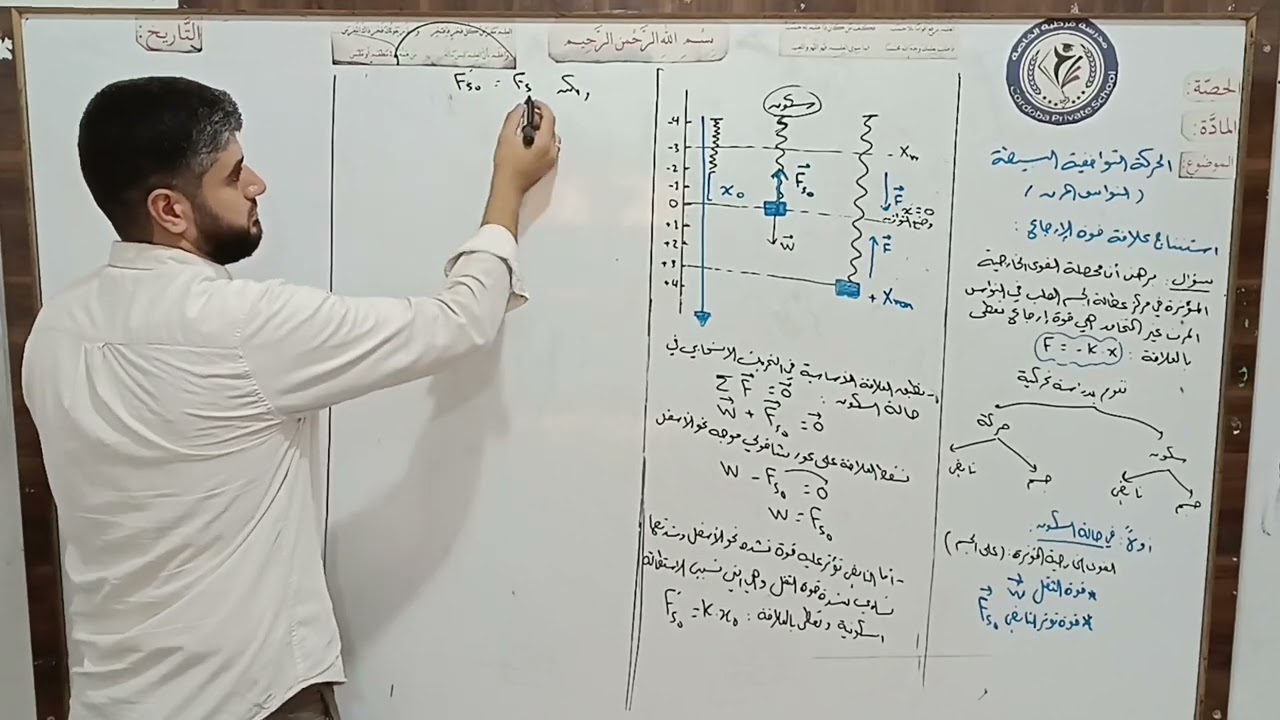 بسم الله الرحمن الرحيم
التاريخ:
الحصة:
المادة:
الموضوع:
مدرسة قرطبة الخاصة
Cordoba Private School
الحركة التوافقية البسيطة
(النواس المرن)
استنتاج علاقة قوة الإرجاع:
سؤال: برهن أن محصلة القوى الخارجية
المؤثرة في مركز عطالة الجسم الصلب في النواس
المرن غير المتخامد هي قوة إرجاع تعطى
بالعلاقة: F = -K.x
نقوم بدراسة تحركية
حركة
سكون
نابض
جسم
نابض
جسم
أولاً: في حالة السكون
القوى الخارجية المؤثرة: (على الجسم)
* قوة الثقل W
* قوة توتر النابض Fs₀
سكون
-4
-3
-2
-1
0
+1
+2
+3
+4
x₀
Fs₀
W
- Xm
F
x=0
وضع التوازن
F
+ Xmax
نطبق العلاقة الأساسية في التحريك الانسحابي في
حالة السكون: Σ F = 0
W + Fs₀ = 0
نسقط العلاقة على محور شاقولي موجه نحو الأسفل
W - Fs₀ = 0
W = Fs₀
- أما النابض تؤثر عليه قوة تشده نحو الأسفل وشدتها
تساوي شدة قوة الثقل وهي التي تسبب الاستطالة
السكونية وتعطى بالعلاقة: F's₀ = K.x₀
ولكن Fs₀ = F's